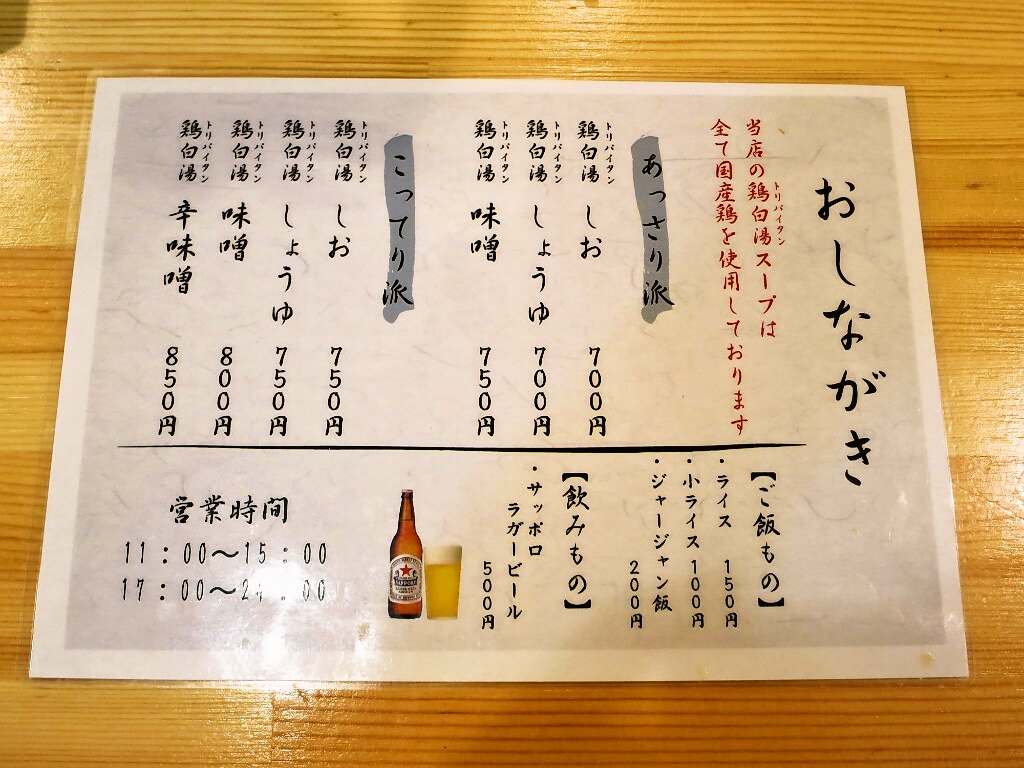 おしながき
当店の鶏白湯スープは
トリパイタン
全て国産鶏を使用しております
あっさり派
鶏白湯 しお 700円
トリパイタン
鶏白湯 しょうゆ 700円
トリパイタン
鶏白湯 味噌 750円
トリパイタン
こってり派
鶏白湯 しお 750円
トリパイタン
鶏白湯 しょうゆ 750円
トリパイタン
鶏白湯 味噌 800円
トリパイタン
鶏白湯 辛味噌 850円
トリパイタン
【ご飯もの】
・ライス 150円
・小ライス 100円
・ジャージャン飯
200円
【飲みもの】
・サッポロ
ラガービール
500円
SAPPORO
営業時間
11：00〜15：00
17：00〜